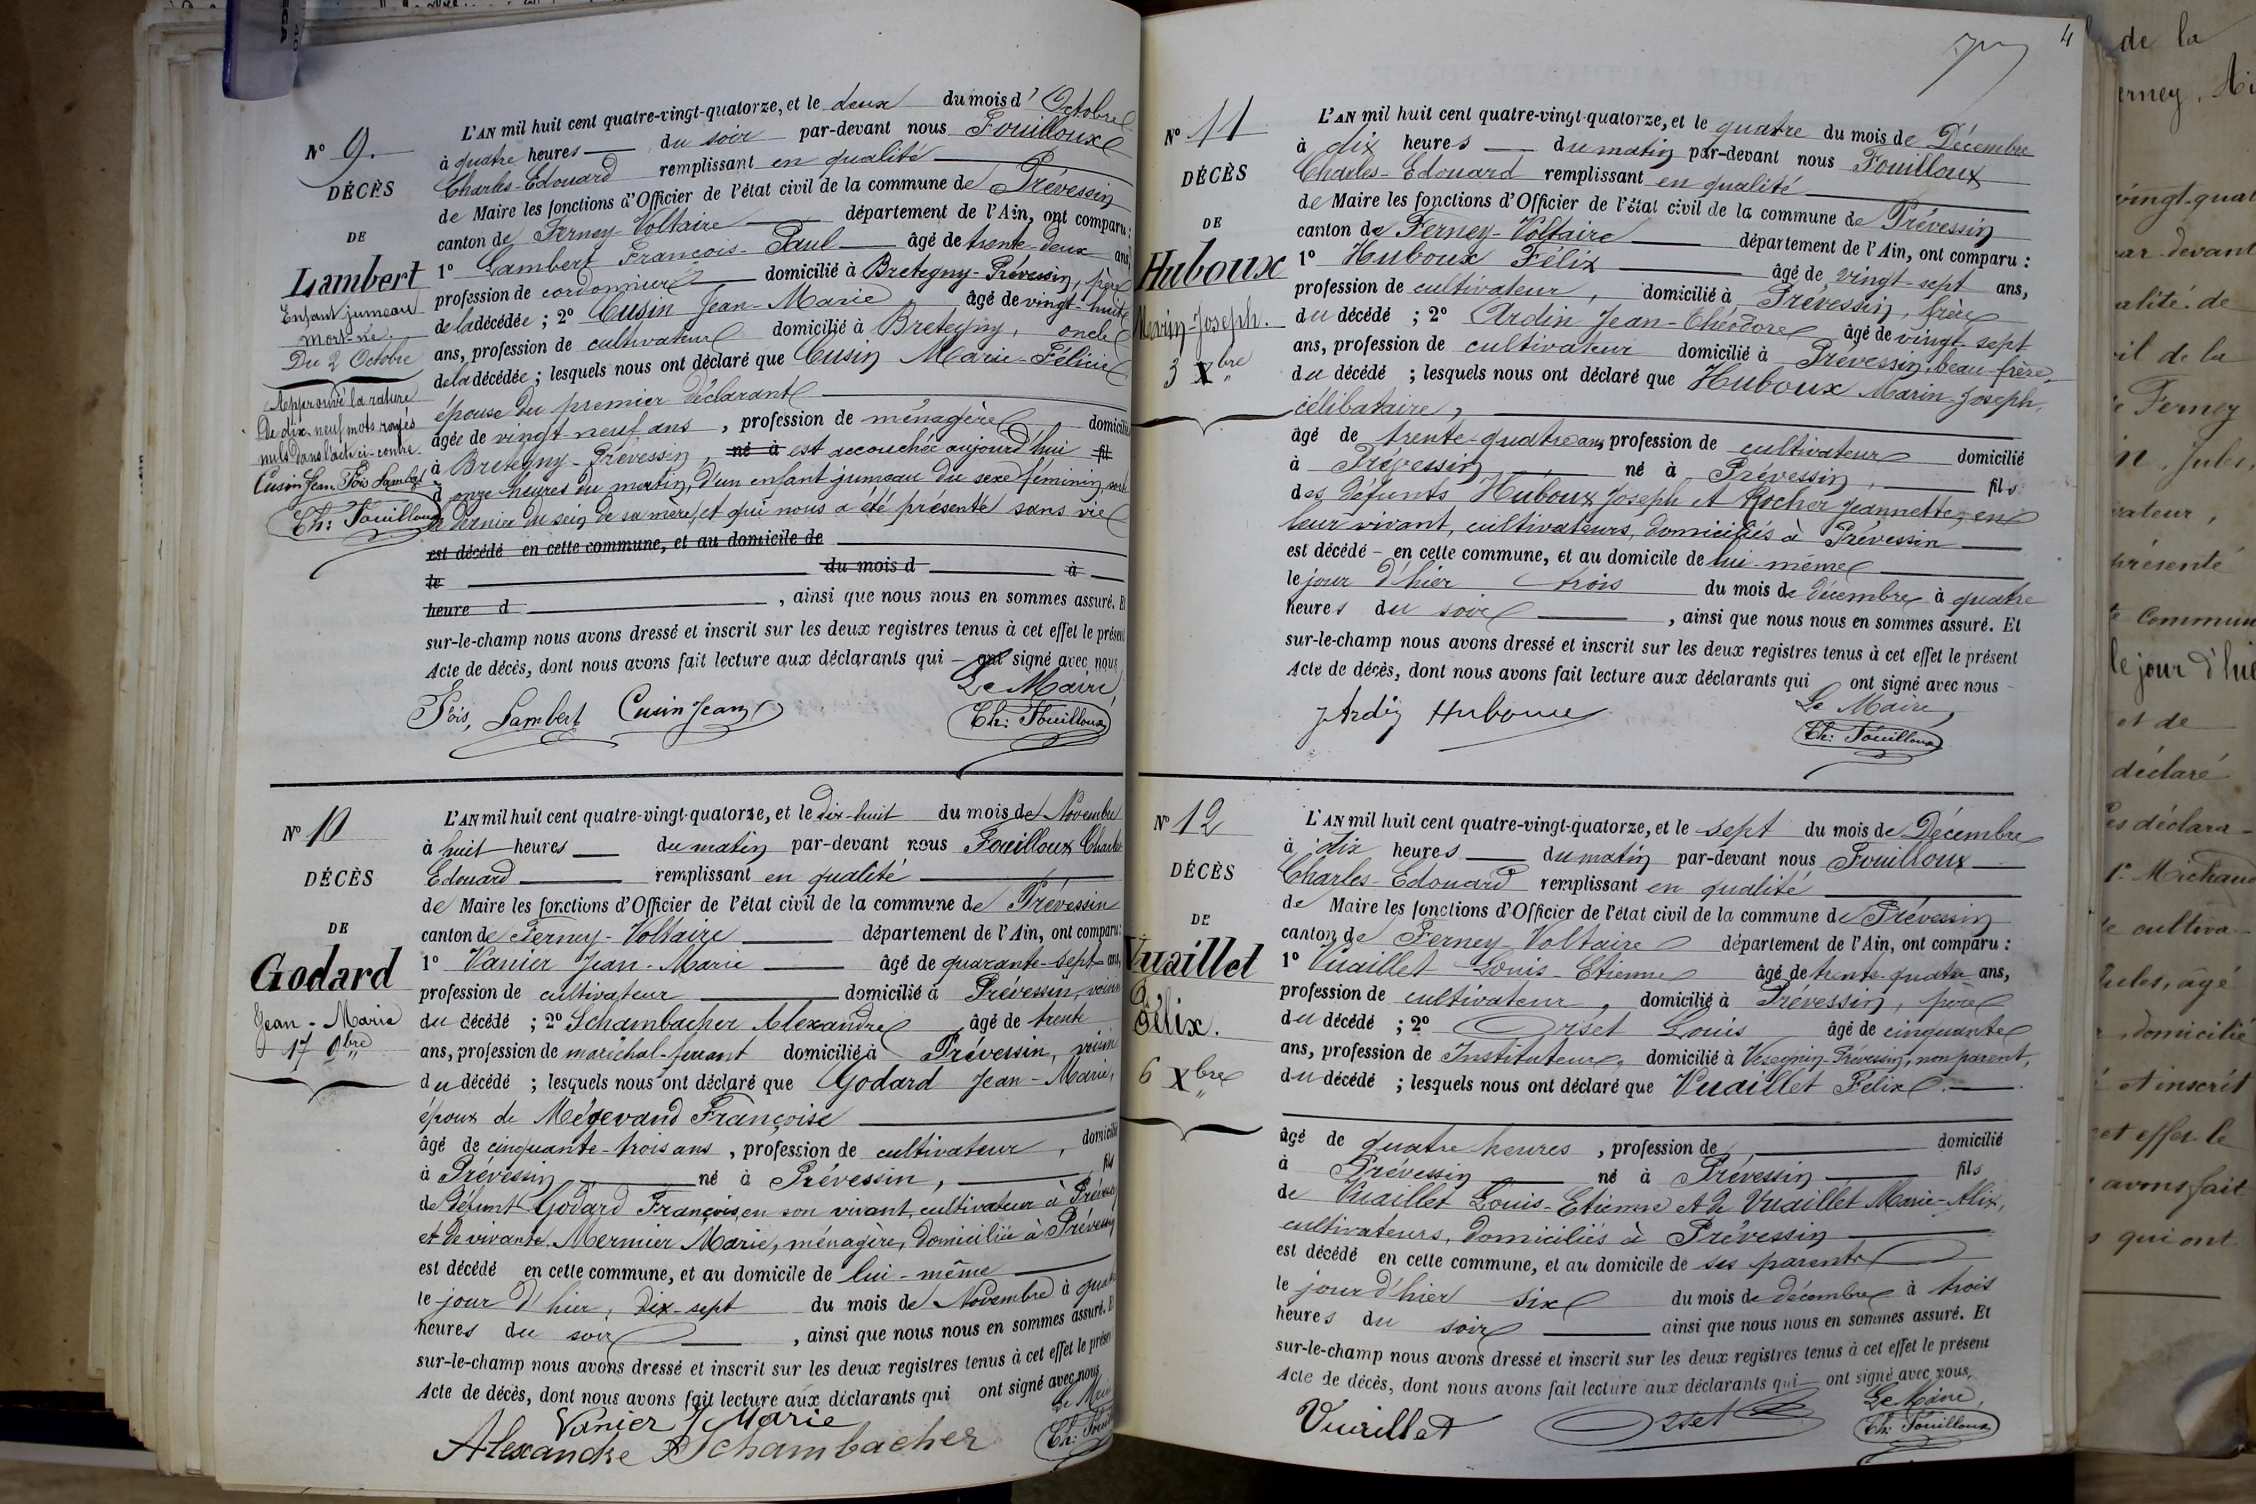 N° 9.
DÉCÈS
DE
Lambert
Enfant jumeau
mort-né.
Du 2 Octobre
Approuvé la rature
de dix-neuf mots rayés
nuls dans l'acte ci-contre.
Cusin Jean Fois Lambert
Ch: Fouilloux
L'AN mil huit cent quatre-vingt-quatorze, et le deux du mois d'Octobre
à quatre heures du soir par-devant nous Fouilloux
Charles-Edouard remplissant en qualité
de Maire les fonctions d'Officier de l'état civil de la commune de Prévessin
canton de Ferney-Voltaire département de l'Ain, ont comparu :
1° Lambert François-Paul âgé de trente-deux ans,
profession de cordonnier domicilié à Bretegny-Prévessin, père
de la décédée ; 2° Cusin Jean-Marie âgé de vingt-huit
ans, profession de cultivateur domicilié à Bretegny, oncle
de la décédée ; lesquels nous ont déclaré que Cusin Marie-Félicie
épouse du premier déclarant
âgée de vingt-neuf ans, profession de ménagère domiciliée
à Bretegny-Prévessin, né à est accouchée aujourd'hui fil
d onze heures du matin, d'un enfant jumeau du sexe féminin, sorti
le dernier du sein de sa mère, et qui nous a été présenté sans vie
est décédé en cette commune, et au domicile de
le du mois d à
heure d , ainsi que nous nous en sommes assuré. Et
sur-le-champ nous avons dressé et inscrit sur les deux registres tenus à cet effet le présent
Acte de décès, dont nous avons fait lecture aux déclarants qui ont signé avec nous
Le Maire
Fois, Lambert Cusin Jean Ch: Fouilloux
N° 10
DÉCÈS
DE
Godard
Jean-Marie
17 9bre
L'AN mil huit cent quatre-vingt-quatorze, et le dix-huit du mois de Novembre
à huit heures du matin par-devant nous Fouilloux Charles
Edouard remplissant en qualité
de Maire les fonctions d'Officier de l'état civil de la commune de Prévessin
canton de Ferney-Voltaire département de l'Ain, ont comparu :
1° Vanier Jean-Marie âgé de quarante-sept ans,
profession de cultivateur domicilié à Prévessin, voisin
du décédé ; 2° Schambacher Alexandre âgé de trente
ans, profession de maréchal-ferrant domicilié à Prévessin, voisin
du décédé ; lesquels nous ont déclaré que Godard Jean-Marie,
époux de Mégevand Françoise
âgé de cinquante-trois ans, profession de cultivateur, domicilié
à Prévessin né à Prévessin, fils
de défunt Godard François, en son vivant, cultivateur à Prévessin
et de vivante Mermier Marie, ménagère, domiciliée à Prévessin
est décédé en cette commune, et au domicile de lui-même
le jour d'hier, dix-sept du mois de Novembre à quatre
heures du soir , ainsi que nous nous en sommes assuré. Et
sur-le-champ nous avons dressé et inscrit sur les deux registres tenus à cet effet le présent
Acte de décès, dont nous avons fait lecture aux déclarants qui ont signé avec nous
Le Maire
Vanier J Marie
Alexandre Schambacher Ch: Fouilloux
4
N° 11
DÉCÈS
DE
Huboux
Marin-Joseph.
3 Xbre
L'AN mil huit cent quatre-vingt-quatorze, et le quatre du mois de Décembre
à dix heures du matin par-devant nous Fouilloux
Charles-Edouard remplissant en qualité
de Maire les fonctions d'Officier de l'état civil de la commune de Prévessin
canton de Ferney-Voltaire département de l'Ain, ont comparu :
1° Huboux Félix âgé de vingt-sept ans,
profession de cultivateur, domicilié à Prévessin, frère
du décédé ; 2° Ardin Jean-Théodore âgé de vingt-sept
ans, profession de cultivateur domicilié à Prévessin, beau-frère
du décédé ; lesquels nous ont déclaré que Huboux Marin-Joseph,
célibataire,
âgé de trente-quatre ans, profession de cultivateur domicilié
à Prévessin, né à Prévessin, fils
des défunts Huboux Joseph et Rocher Jeannette, en
leur vivant, cultivateurs, domiciliés à Prévessin
est décédé en cette commune, et au domicile de lui-même
le jour d'hier trois du mois de décembre à quatre
heures du soir , ainsi que nous nous en sommes assuré. Et
sur-le-champ nous avons dressé et inscrit sur les deux registres tenus à cet effet le présent
Acte de décès, dont nous avons fait lecture aux déclarants qui ont signé avec nous
Le Maire,
J Ardin Huboux Ch: Fouilloux
N° 12
DÉCÈS
DE
Vuaillet
Félix.
6 Xbre
L'AN mil huit cent quatre-vingt-quatorze, et le sept du mois de Décembre
à dix heures du matin par-devant nous Fouilloux
Charles-Edouard remplissant en qualité
de Maire les fonctions d'Officier de l'état civil de la commune de Prévessin
canton de Ferney-Voltaire département de l'Ain, ont comparu :
1° Vuaillet Louis-Etienne âgé de trente-quatre ans,
profession de cultivateur, domicilié à Prévessin, père
du décédé ; 2° Orset Louis âgé de cinquante
ans, profession de Instituteur, domicilié à Vésegnin-Prévessin, non parent,
du décédé ; lesquels nous ont déclaré que Vuaillet Félix
âgé de quatre heures, profession de domicilié
à Prévessin né à Prévessin fils
de Vuaillet Louis-Etienne et de Vuaillet Marie-Alix,
cultivateurs, domiciliés à Prévessin
est décédé en cette commune, et au domicile de ses parents
le jour d'hier six du mois de décembre à trois
heures du soir ainsi que nous nous en sommes assuré. Et
sur-le-champ nous avons dressé et inscrit sur les deux registres tenus à cet effet le présent
Acte de décès, dont nous avons fait lecture aux déclarants qui ont signé avec nous
Le Maire,
Vuaillet Orset Ch: Fouilloux
de la
erney, Ai
vingt-quat
par-devant
alité de
il de la
Ferney
Jules,
vateur,
présenté
commun
le jour d'hie
et de
déclaré
es déclara-
1° Michaud
cultiva-
Jules, âgé
domicilié
et inscrit
cet effet le
avons fait
qui ont